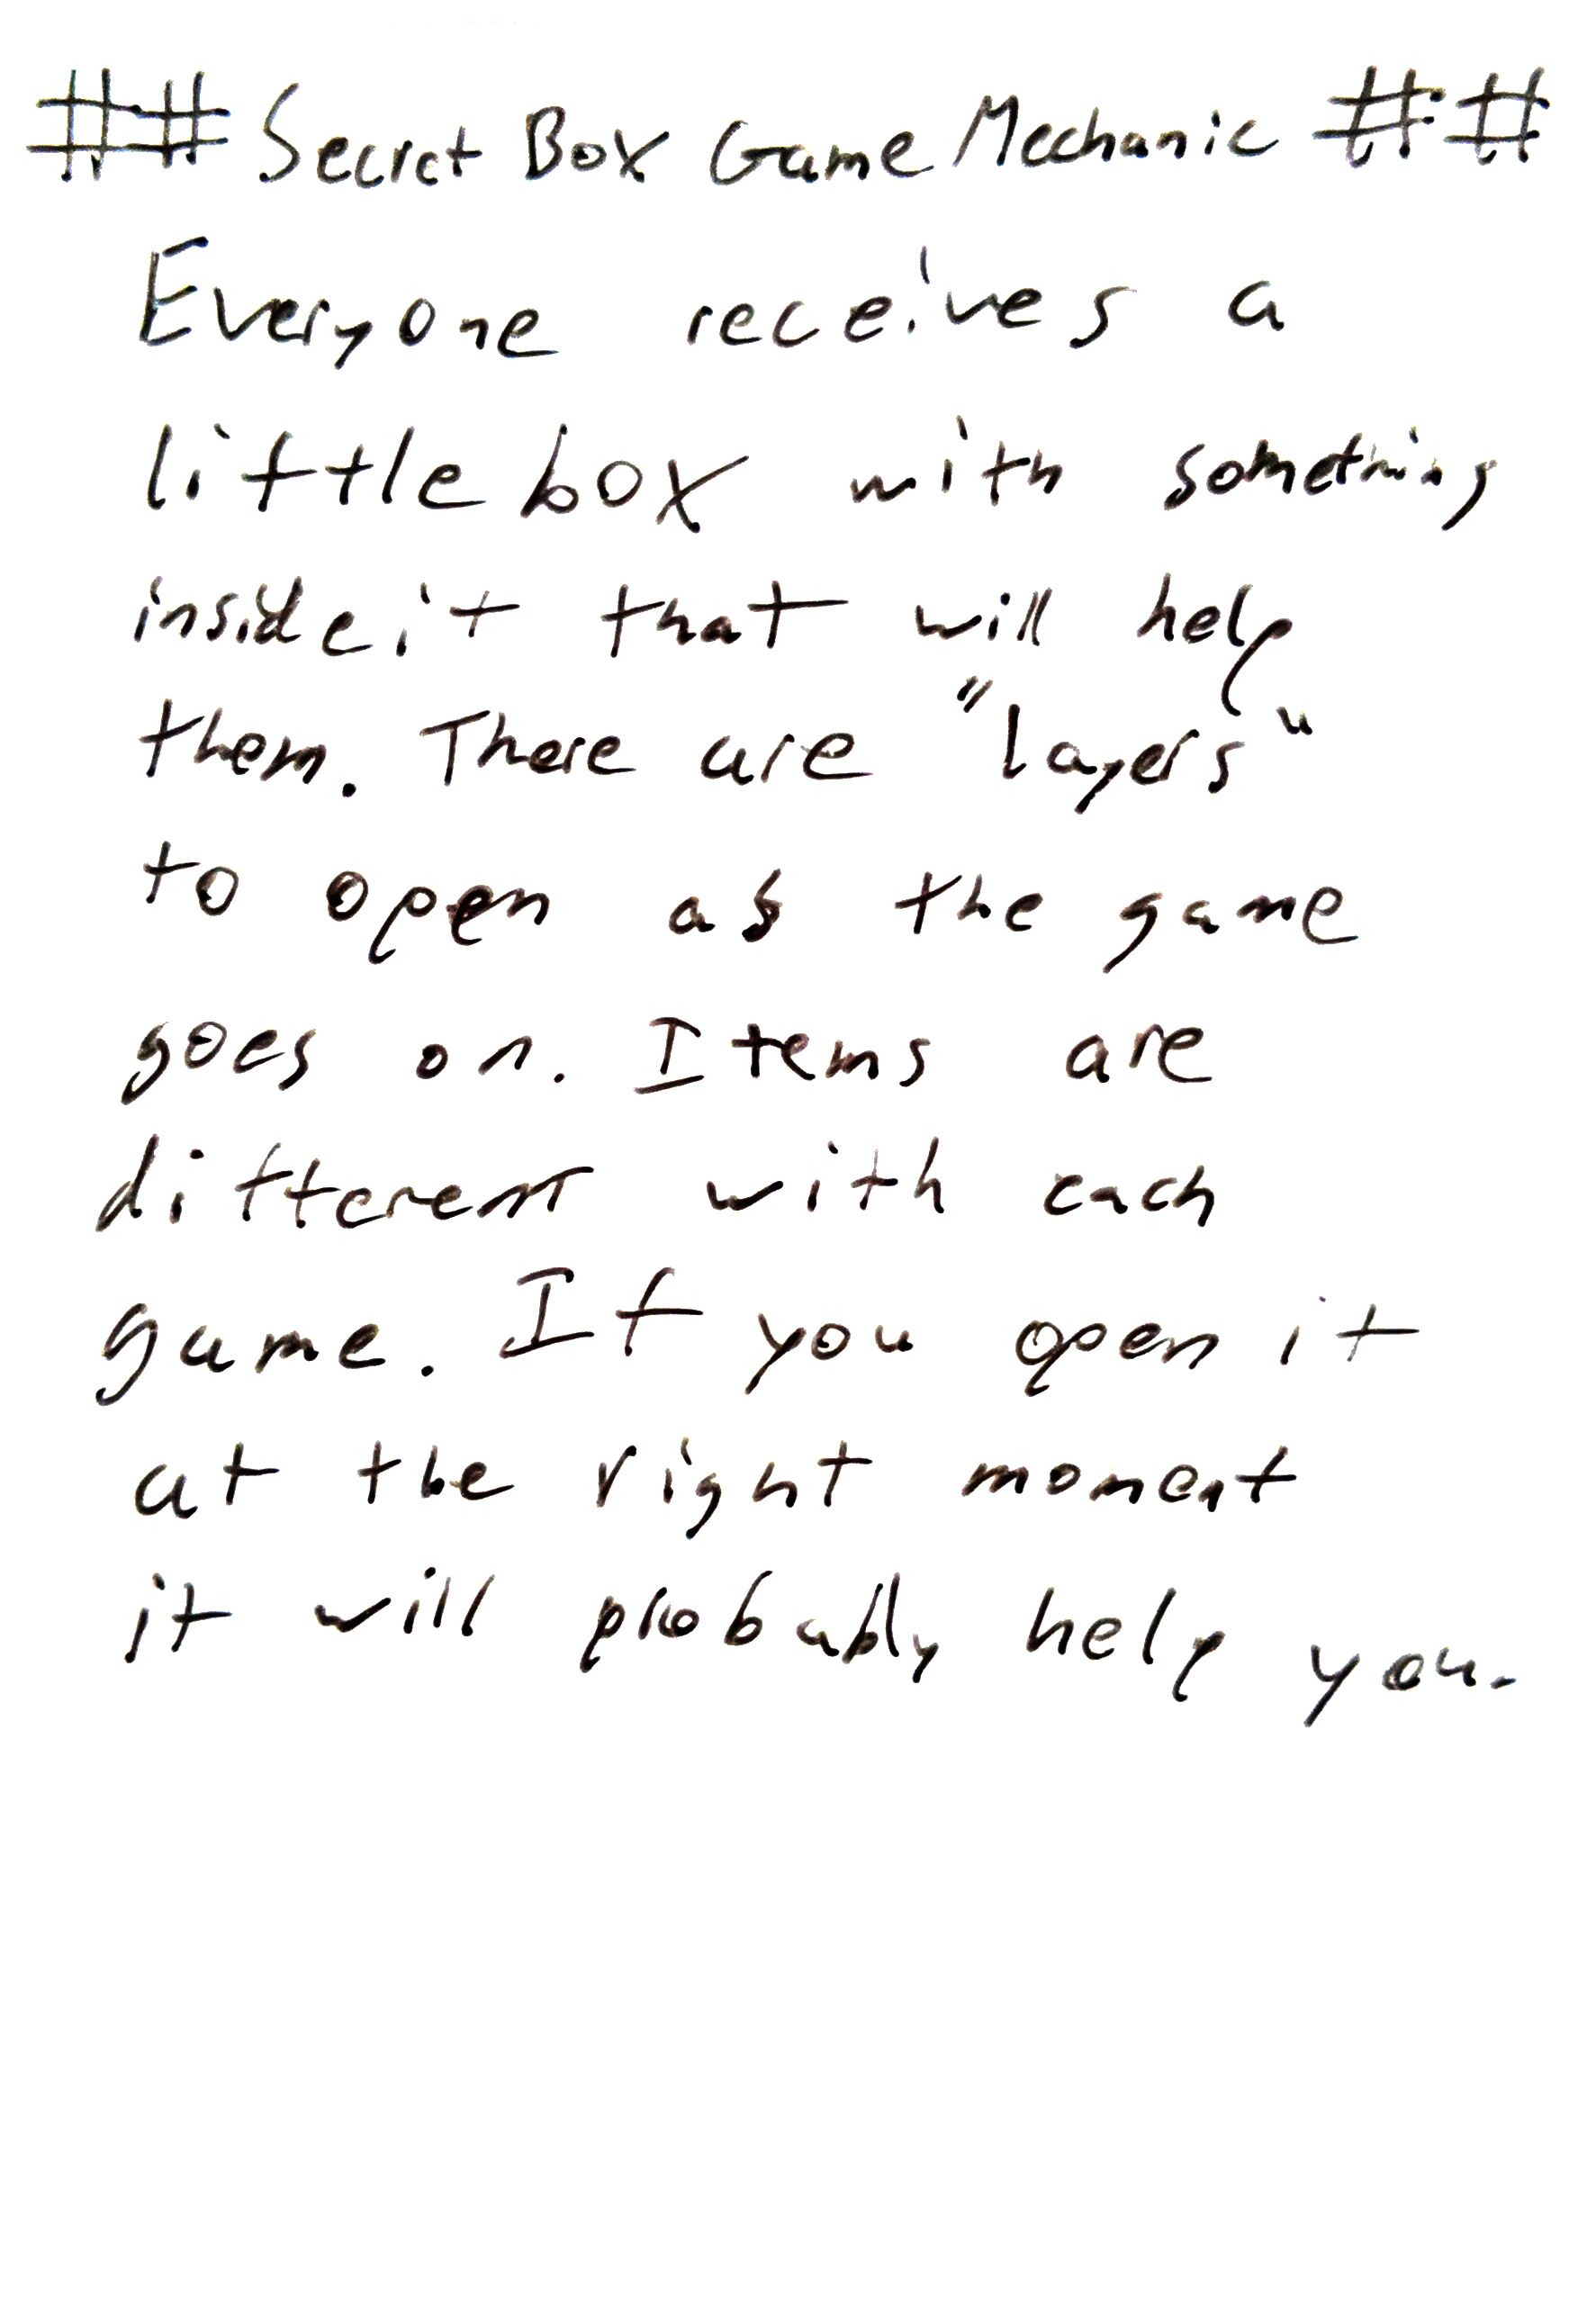 ## Secret Box Game Mechanic ##
Everyone receives a
little box with something
inside it that will help
them. There are "layers"
to open as the game
goes on. Items are
different with each
game. If you open it
at the right moment
it will probably help you.